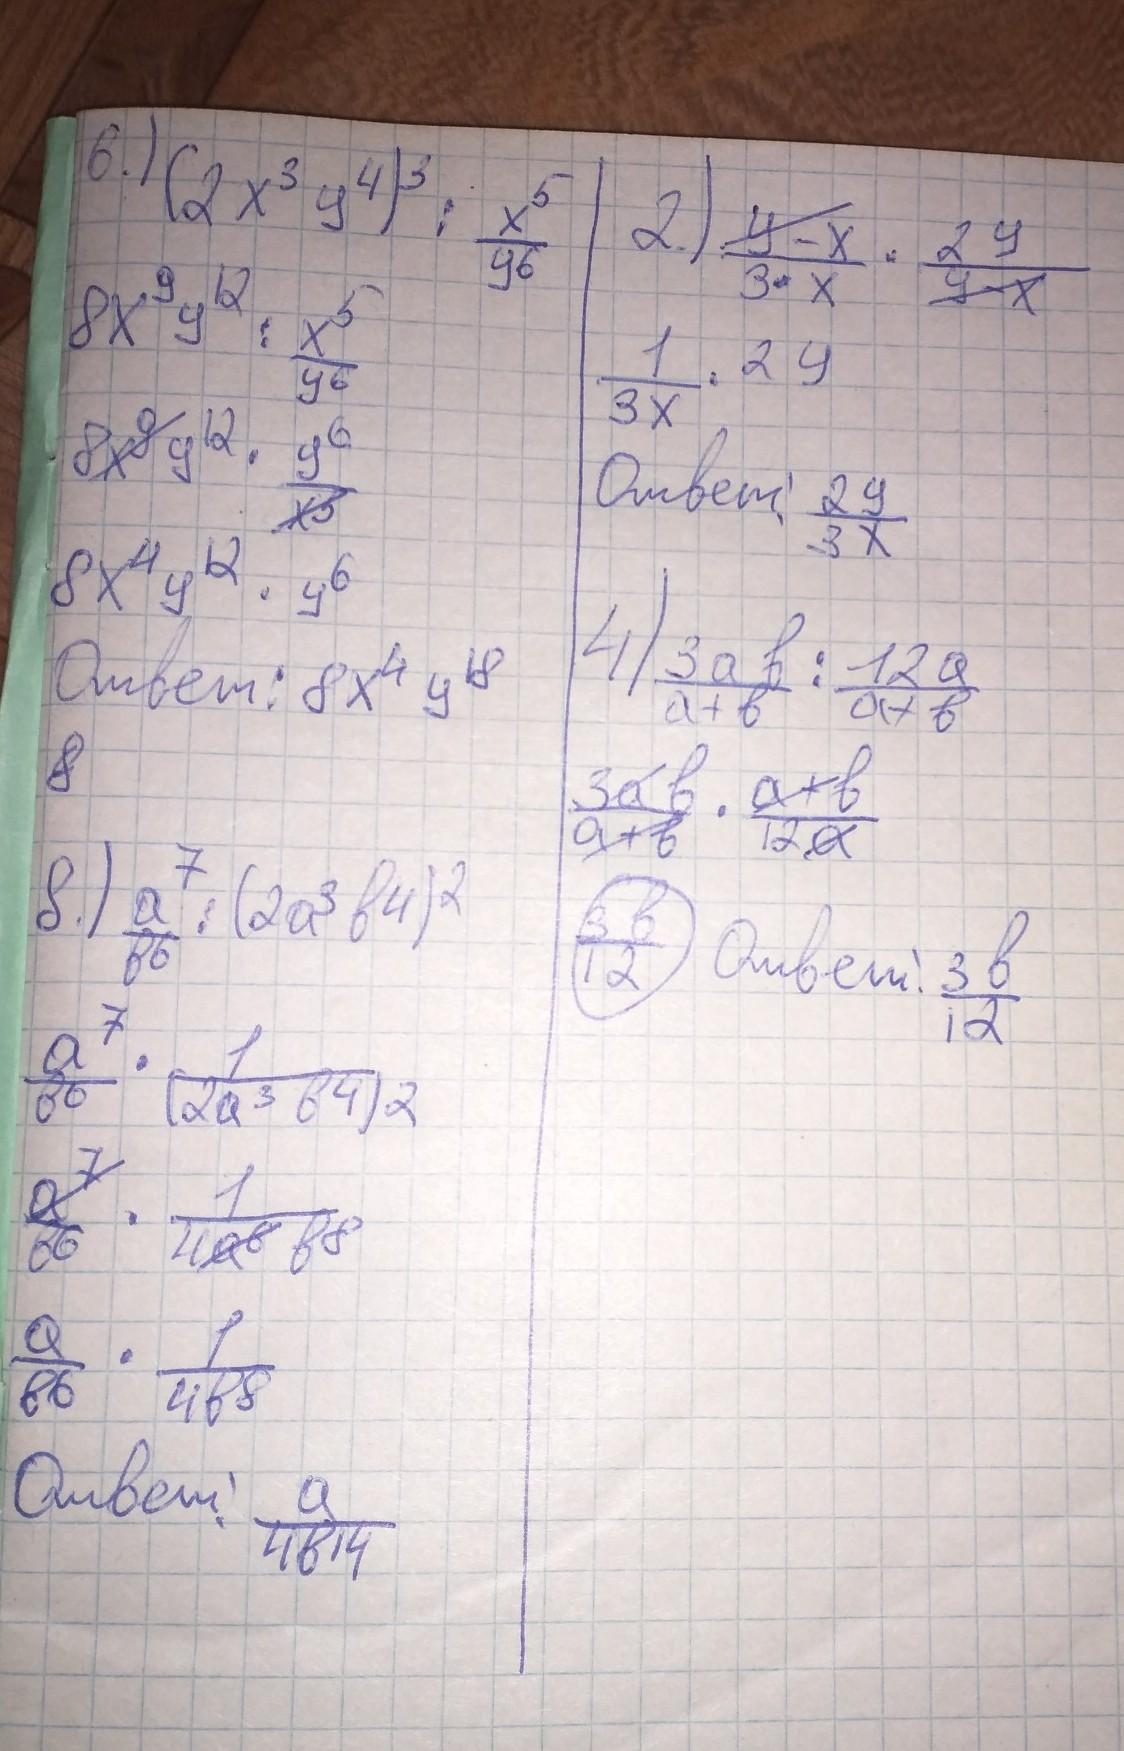 6.) (2x³y⁴)³ : x⁵/y⁶
8x⁹y¹² : x⁵/y⁶
8x⁹y¹² · y⁶/x⁵
8x⁴y¹² · y⁶
Ответ: 8x⁴y¹⁸
8
8.) a⁷/в6 : (2a³в4)²
a⁷/в6 · 1/(2a³в4)2
a⁷/в6 · 1/4a⁶в8
a/в6 · 1/4в8
Ответ: a/4в14
2.) y-x/3·x · 2y/y-x
1/3x · 2y
Ответ: 2y/3x
4) 3aв/a+в : 12a/a+в
3aв/a+в · a+в/12a
3в/12 Ответ: 3в/12